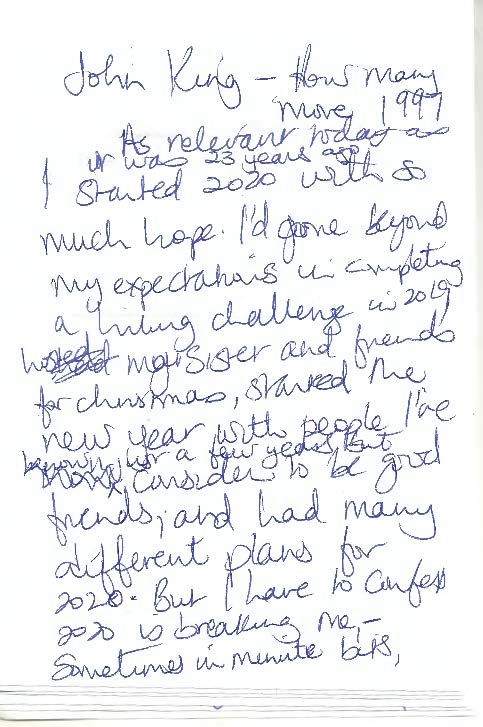 John King – How many
more, 1997
As relevant today as
it was 23 years ago
I started 2020 with so
much hope. I'd gone beyond
my expectations in completing
a hiking challenge in 2019
hosted my sister and friends
for christmas, started the
new year with people I've
known for a few years, but
consider to be good
friends, and had many
different plans for
2020. But I have to confess
2020 is breaking me, –
sometimes in minute bits,